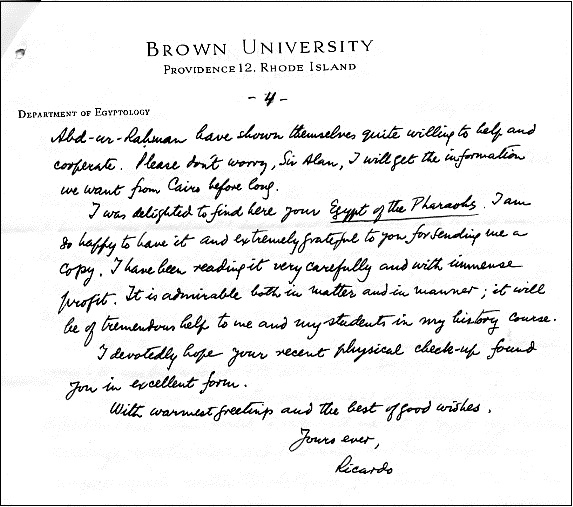 BROWN UNIVERSITY
PROVIDENCE 12, RHODE ISLAND
- 4 -
DEPARTMENT OF EGYPTOLOGY
Abd-ur-Rahman have shown themselves quite willing to help and
cooperate. Please don't worry, Sir Alan, I will get the information
we want from Cairo before long.
I was delighted to find here your Egypt of the Pharaohs. I am
so happy to have it and extremely grateful to you for sending me a
copy. I have been reading it very carefully and with immense
profit. It is admirable both in matter and in manner; it will
be of tremendous help to me and my students in my history course.
I devotedly hope your recent physical check-up found
you in excellent form.
With warmest greetings and the best of good wishes.
Yours ever,
Ricardo